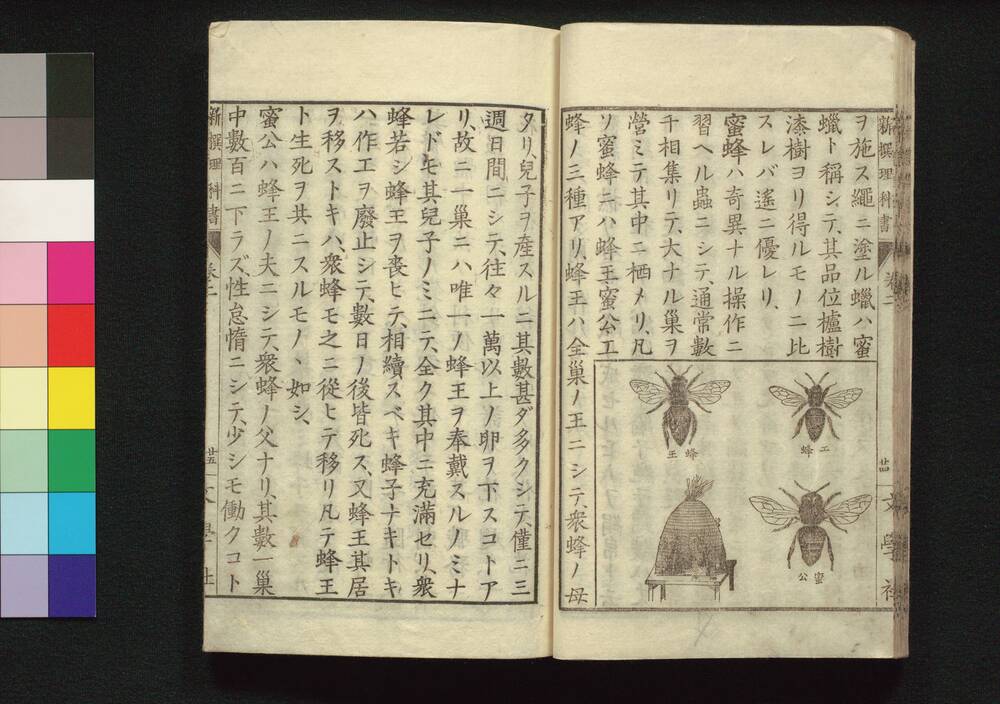 新撰理科書 卷二 廿四 文學社
ヲ施ス繩ニ塗ル蠟ハ蜜
蠟ト稱シテ、其品位櫨樹
漆樹ヨリ得ルモノニ比
スレバ遙ニ優レリ、
蜜蜂ハ奇異ナル操作ニ
習ヘル蟲ニシテ、通常數
千相集リテ、大ナル巢ヲ
營ミテ其中ニ栖メリ、凡
ソ蜜蜂ニハ蜂王蜜公工
蜂ノ三種アリ、蜂王ハ全巢ノ王ニシテ、衆蜂ノ母
工蜂
蜂王
蜜公
タリ、兒子ヲ産スルニ其數甚ダ多クシテ、僅ニ三
週日間ニシテ、往々一萬以上ノ卵ヲ下スコトア
リ、故ニ一巢ニハ唯一ノ蜂王ヲ奉戴スルノミナ
レドモ其兒子ノミニテ、全ク其中ニ充滿セリ、衆
蜂若シ蜂王ヲ喪ヒテ、相續スベキ蜂子ナキトキ
ハ作工ヲ廢止シテ、數日ノ後皆死ス、又蜂王其居
ヲ移ストキハ、衆蜂モ之ニ從ヒテ移リ凡テ蜂王
ト生死ヲ共ニスルモノヽ如シ、
蜜公ハ蜂王ノ夫ニシテ、衆蜂ノ父ナリ、其數一巢
中數百ニ下ラズ、性怠惰ニシテ、少シモ働クコト
新撰理科書 卷二 廿五 文學社